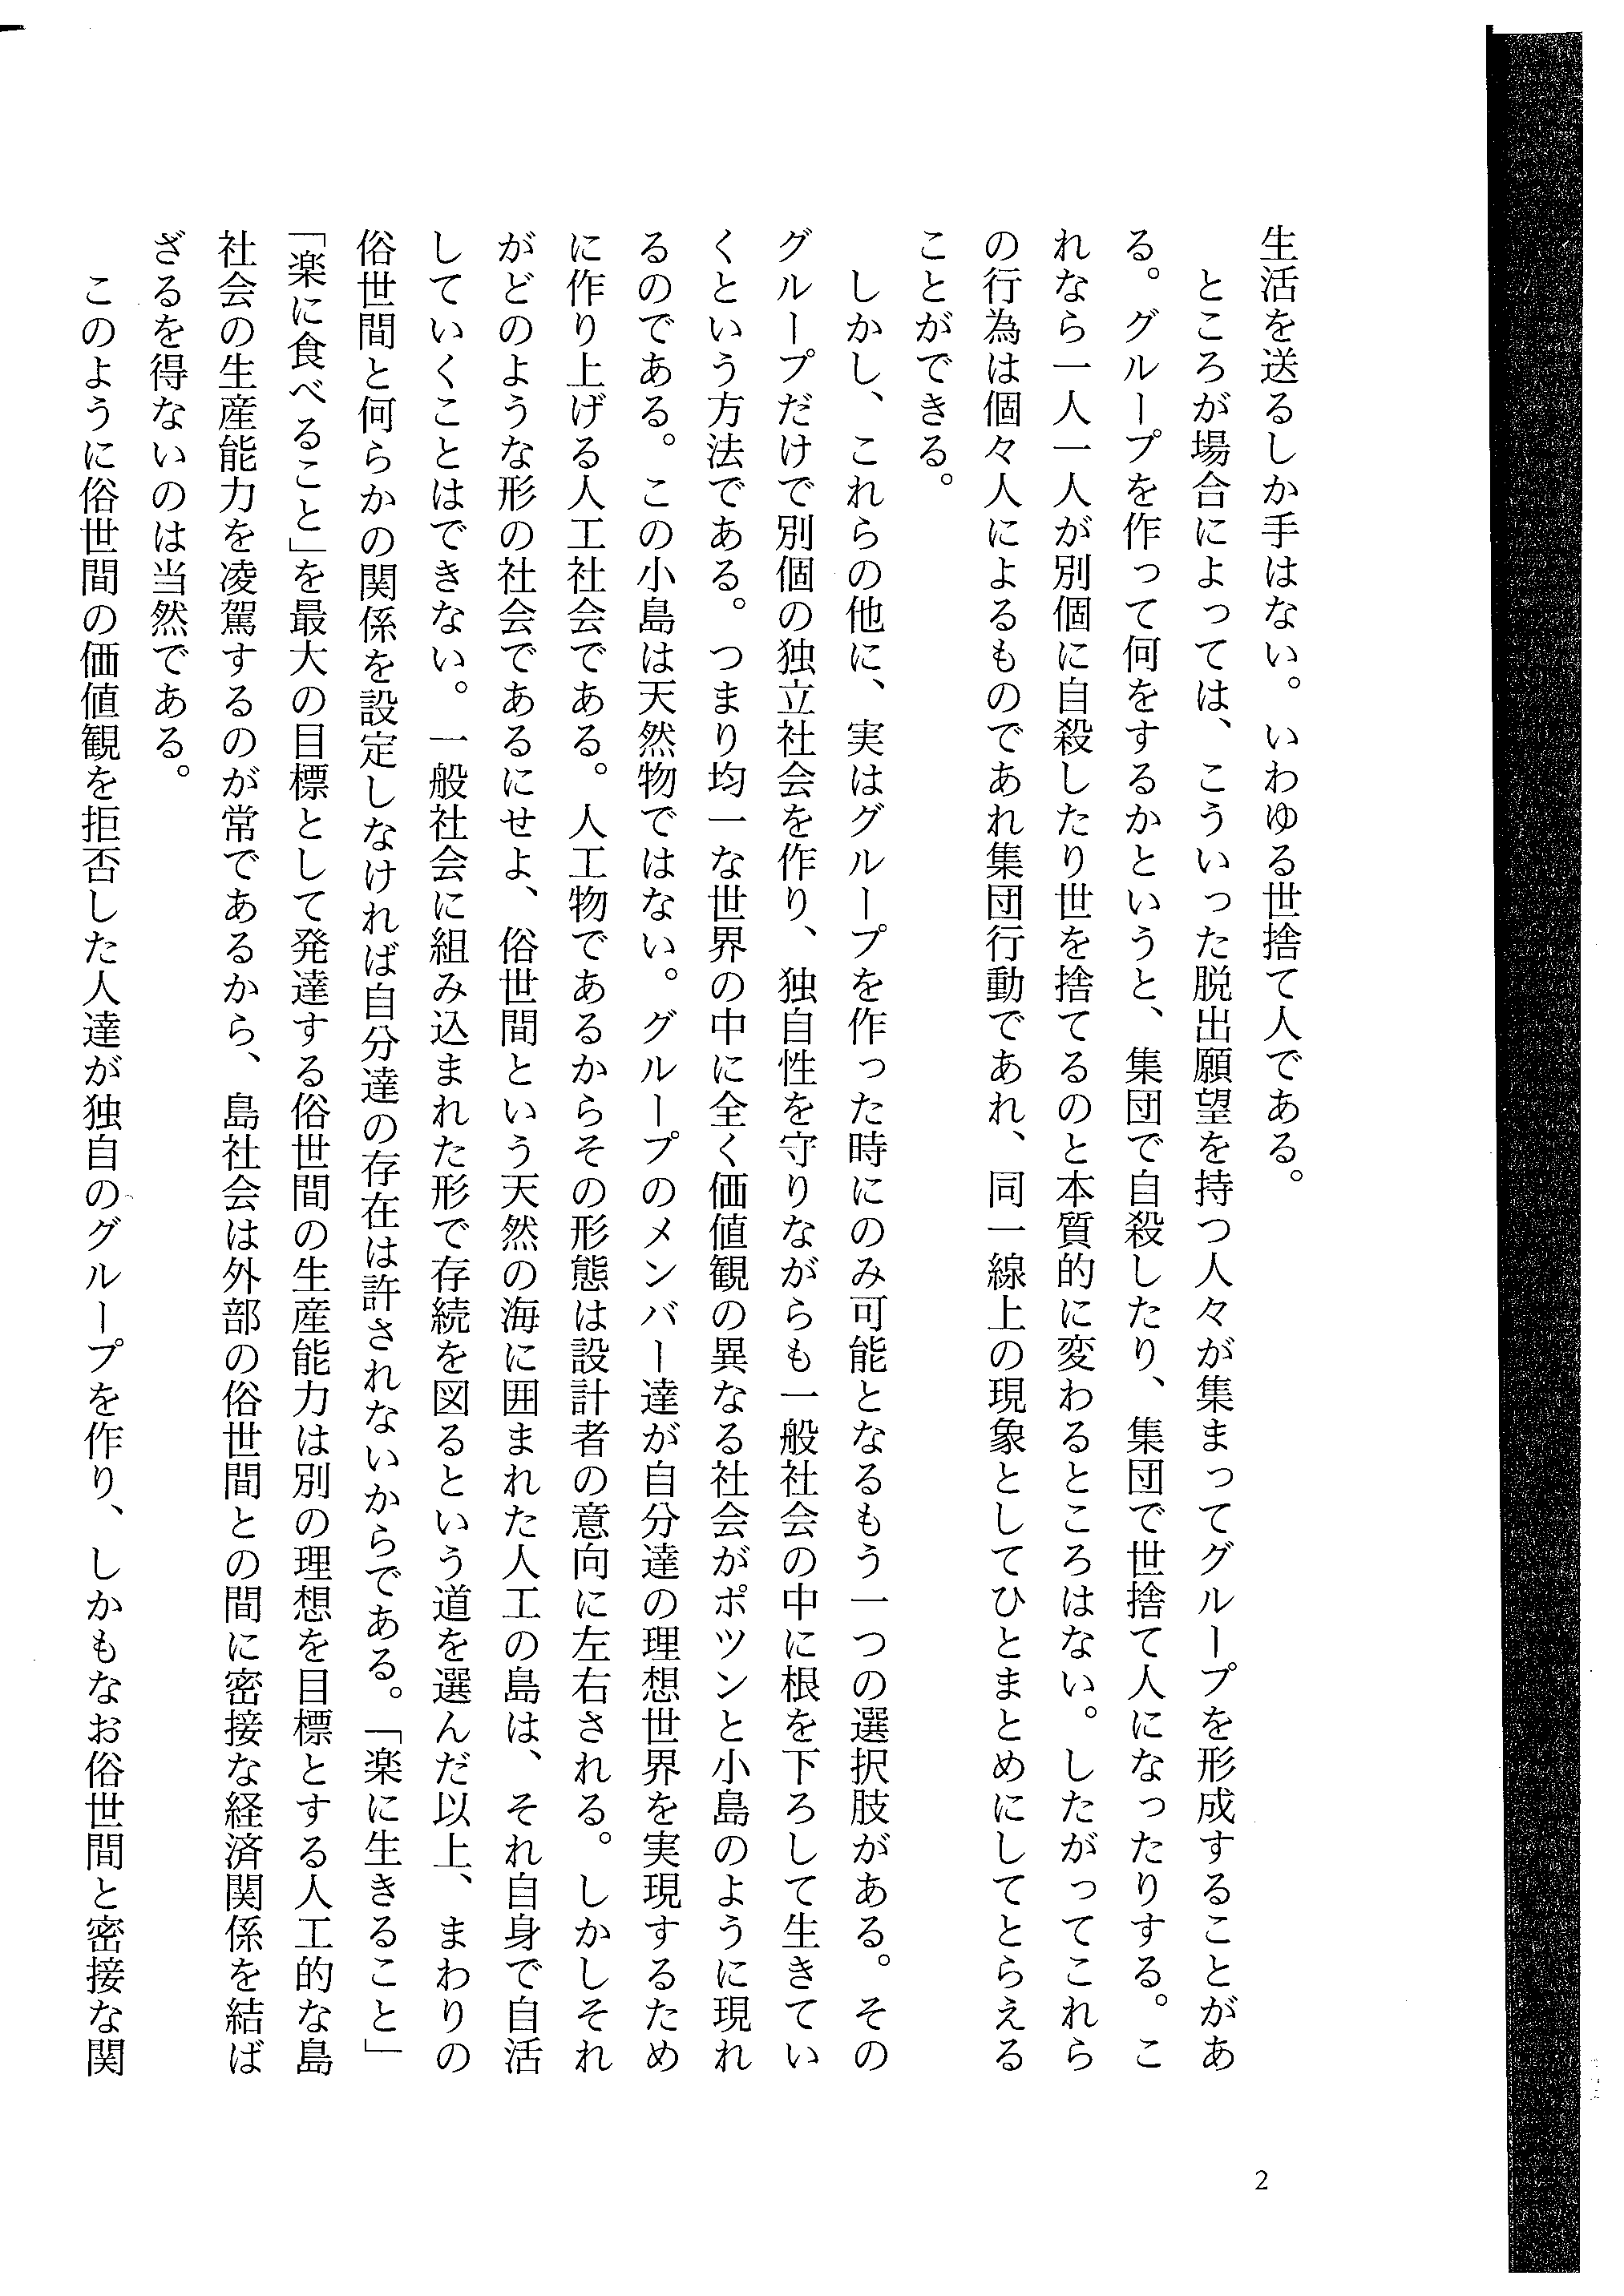 生活を送るしか手はない。いわゆる世捨て人である。
ところが場合によっては、こういった脱出願望を持つ人々が集まってグループを形成することがあ
る。グループを作って何をするかというと、集団で自殺したり、集団で世捨て人になったりする。こ
れなら一人一人が別個に自殺したり世を捨てるのと本質的に変わるところはない。したがってこれら
の行為は個々人によるものであれ集団行動であれ、同一線上の現象としてひとまとめにしてとらえる
ことができる。
しかし、これらの他に、実はグループを作った時にのみ可能となるもう一つの選択肢がある。その
グループだけで別個の独立社会を作り、独自性を守りながらも一般社会の中に根を下ろして生きてい
くという方法である。つまり均一な世界の中に全く価値観の異なる社会がポツンと小島のように現れ
るのである。この小島は天然物ではない。グループのメンバー達が自分達の理想世界を実現するため
に作り上げる人工社会である。人工物であるからその形態は設計者の意向に左右される。しかしそれ
がどのような形の社会であるにせよ、俗世間という天然の海に囲まれた人工の島は、それ自身で自活
していくことはできない。一般社会に組み込まれた形で存続を図るという道を選んだ以上、まわりの
俗世間と何らかの関係を設定しなければ自分達の存在は許されないからである。「楽に生きること」
「楽に食べること」を最大の目標として発達する俗世間の生産能力は別の理想を目標とする人工的な島
社会の生産能力を凌駕するのが常であるから、島社会は外部の俗世間との間に密接な経済関係を結ば
ざるを得ないのは当然である。
このように俗世間の価値観を拒否した人達が独自のグループを作り、しかもなお俗世間と密接な関
2